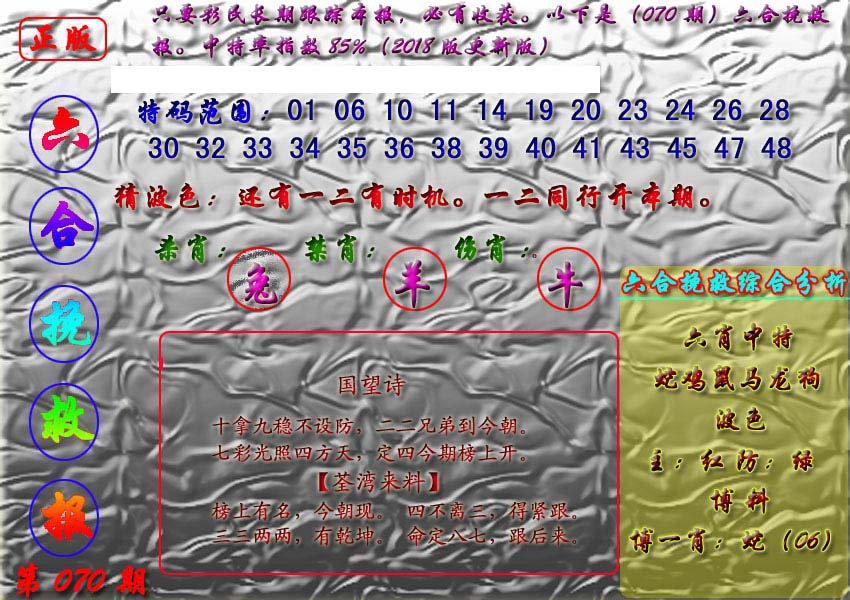 正版
只要彩民长期跟踪本报，必有收获。以下是（070期）六合挽救
报。中特率指数85%（2018版更新版）
六合挽救报
第070期
特码范围：01 06 10 11 14 19 20 23 24 26 28
30 32 33 34 35 36 38 39 40 41 43 45 47 48
猜波色：还有一二有时机。一二同行开本期。
杀肖：兔 禁肖：羊 伤肖：牛
国望诗
十拿九稳不设防，二二兄弟到今朝。
七彩光照四方天，定四今期榜上开。
【荃湾来料】
榜上有名，今朝现。 四不离三，得紧跟。
三三两两，有乾坤。 命定八七，跟后来。
六合挽救综合分析
六肖中特
蛇鸡鼠马龙狗
波色
主：红防：绿
博料
博一肖：蛇（06）